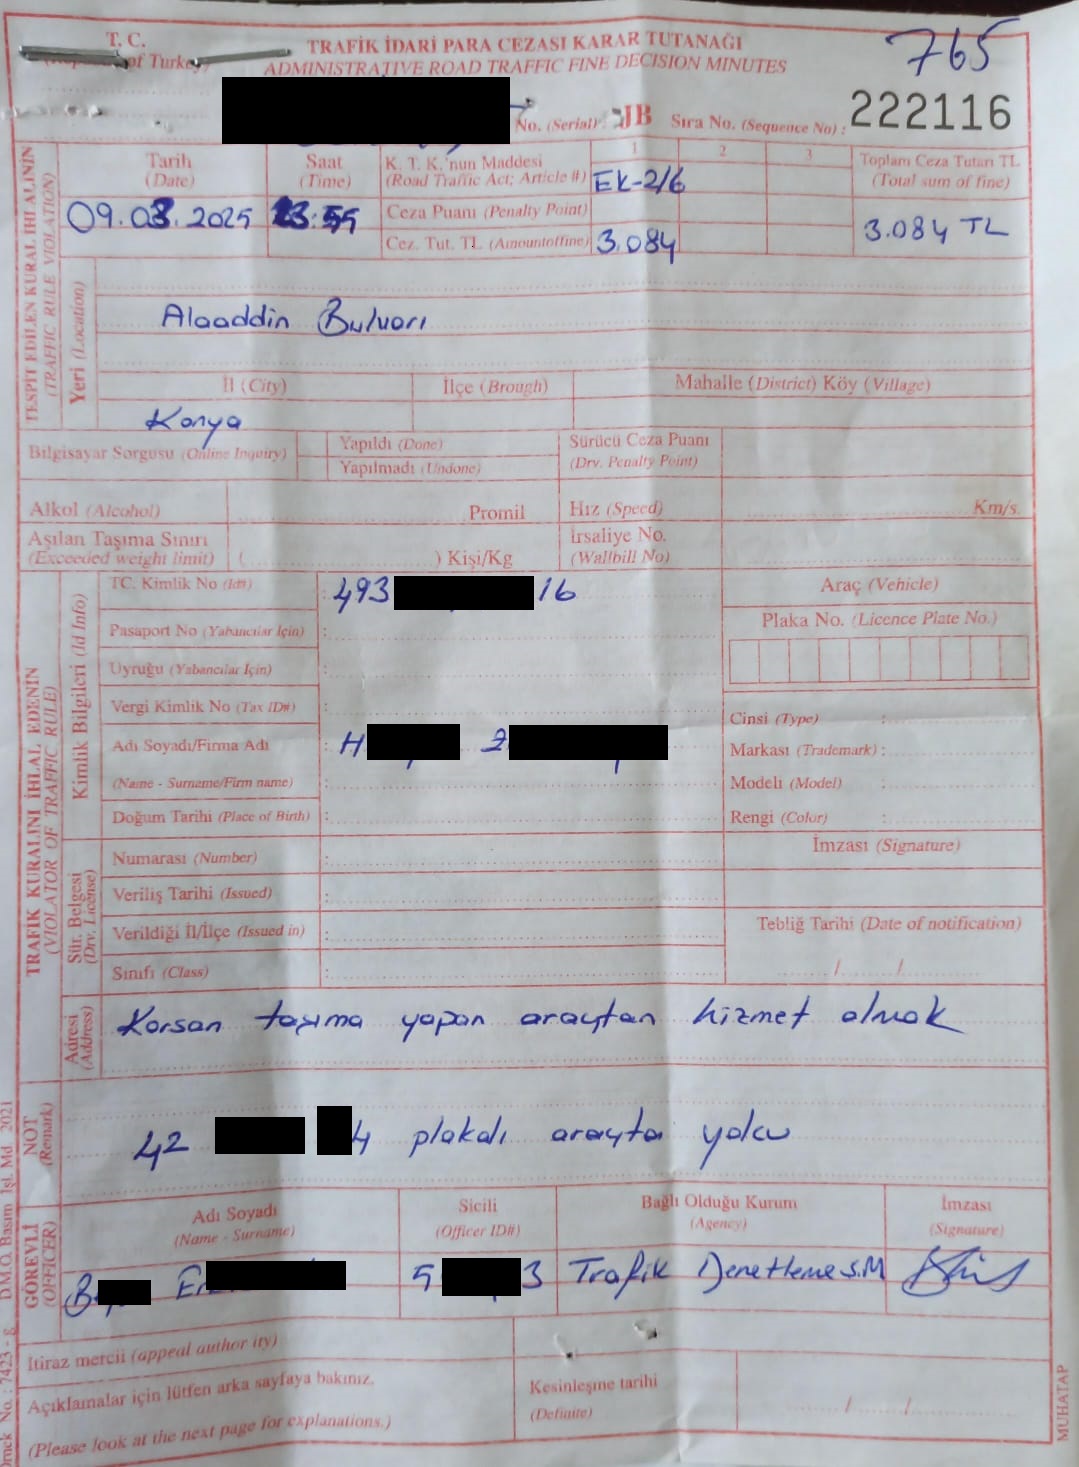 T. C.
of Turkey)
TRAFİK İDARİ PARA CEZASI KARAR TUTANAĞI
ADMINISTRATIVE ROAD TRAFFIC FINE DECISION MINUTES
765
No. (Serial) JB Sıra No. (Sequence No) : 222116
TESPİT EDİLEN KURAL İHLALİNİN
(TRAFFIC RULE VIOLATION)
Tarih
(Date)
Saat
(Time)
K. T. K.'nun Maddesi
(Road Traffic Act; Article #)
1 2 3
Toplam Ceza Tutarı TL
(Total sum of fine)
EK-2/6
09.03.2025
Ceza Puanı (Penalty Point)
Cez. Tut. TL (Amountoffine)
3.084
3.084 TL
Yeri (Location)
Alaaddin Bulvarı
İl (City) İlçe (Brough) Mahalle (District) Köy (Village)
Konya
Bilgisayar Sorgusu (Online Inquiry)
Yapıldı (Done)
Yapılmadı (Undone)
Sürücü Ceza Puanı
(Drv. Penalty Point)
Alkol (Alcohol) Promil Hız (Speed) Km/s.
Aşılan Taşıma Sınırı
(Exceeded weight limit) ( ) Kişi/Kg
İrsaliye No.
(Wallbill No)
TRAFİK KURALINI İHLAL EDENİN
(VIOLATOR OF TRAFFIC RULE)
Kimlik Bilgileri (Id Info)
TC. Kimlik No (Id#) : 493 16
Pasaport No (Yabancılar İçin) :
Uyruğu (Yabancılar İçin) :
Vergi Kimlik No (Tax ID#) :
Adı Soyadı/Firma Adı : H
(Name - Surname/Firm name) :
Doğum Tarihi (Place of Birth) :
Araç (Vehicle)
Plaka No. (Licence Plate No.)
Cinsi (Type) :
Markası (Trademark) :
Modeli (Model) :
Rengi (Color) :
Sür. Belgesi
(Drv. License)
Numarası (Number) :
Veriliş Tarihi (Issued) :
Verildiği İl/İlçe (Issued in) :
Sınıfı (Class) :
İmzası (Signature)
Tebliğ Tarihi (Date of notification)
/ /
Adresi
(Address)
Korsan taşıma yapan araçtan hizmet almak
NOT
(Remark)
42 4 plakalı araçta yolcu
GÖREVLİ
(OFFICER)
Adı Soyadı
(Name - Surname)
Sicili
(Officer ID#)
Bağlı Olduğu Kurum
(Agency)
İmzası
(Signature)
B
5 3
Trafik Denetleme S.M
İtiraz mercii (appeal author ity)
Açıklamalar için lütfen arka sayfaya bakınız.
(Please look at the next page for explanations.)
Kesinleşme tarihi
(Definite)
/ /
MUHATAP
No. : 7423 - g D.M.O. Basım İşl. Md. 2021